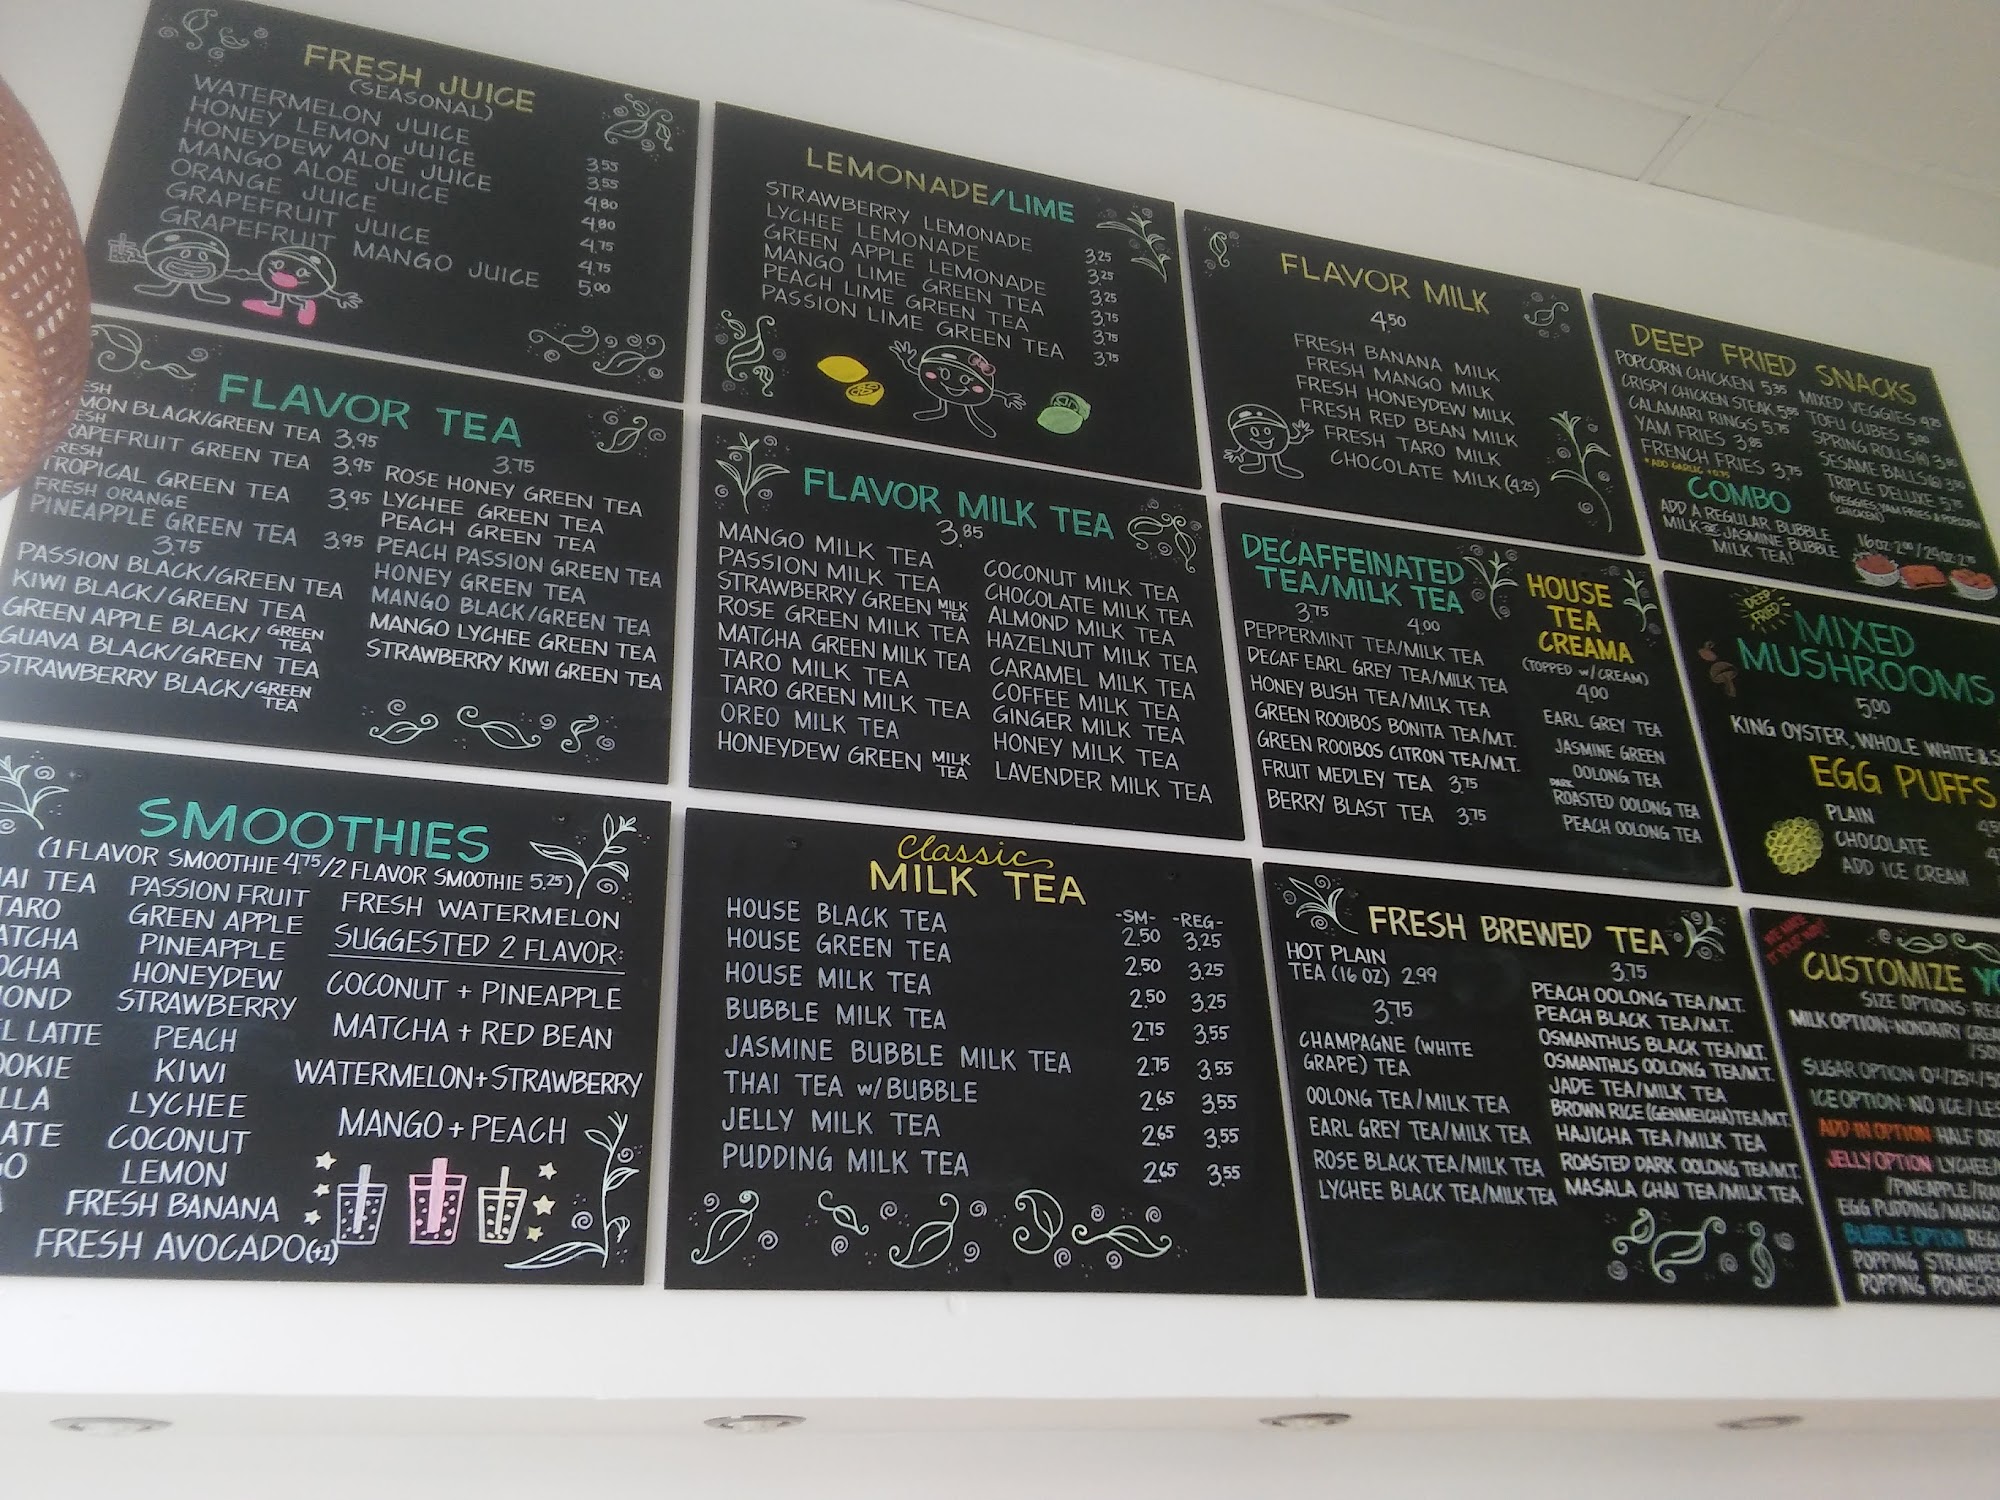 FRESH JUICE
(SEASONAL)
WATERMELON JUICE 3.55
HONEY LEMON JUICE 3.55
HONEYDEW ALOE JUICE 4.80
MANGO ALOE JUICE 4.80
ORANGE JUICE 4.75
GRAPEFRUIT JUICE 4.75
GRAPEFRUIT MANGO JUICE 5.00
LEMONADE/LIME
STRAWBERRY LEMONADE 3.25
LYCHEE LEMONADE 3.25
GREEN APPLE LEMONADE 3.25
MANGO LIME GREEN TEA 3.75
PEACH LIME GREEN TEA 3.75
PASSION LIME GREEN TEA 3.75
FLAVOR MILK
4.50
FRESH BANANA MILK
FRESH MANGO MILK
FRESH HONEYDEW MILK
FRESH RED BEAN MILK
FRESH TARO MILK
CHOCOLATE MILK (4.25)
DEEP FRIED SNACKS
POPCORN CHICKEN 5.35
CRISPY CHICKEN STEAK 5.55
CALAMARI RINGS 5.75
YAM FRIES 3.85
FRENCH FRIES 3.75
*ADD GARLIC +0.75
MIXED VEGGIES 4.25
TOFU CUBES 5.00
SPRING ROLLS
SESAME BALLS(6) 3.00
TRIPLE DELUXE 5.75
(VEGGIES, YAM FRIES & POPCORN
CHICKEN)
COMBO
ADD A REGULAR BUBBLE
MILK OR JASMINE BUBBLE
MILK TEA!
16 OZ 2.00 / 24 OZ
FLAVOR TEA
MON BLACK/GREEN TEA 3.95
FRESH
RAPEFRUIT GREEN TEA 3.95
FRESH
TROPICAL GREEN TEA 3.95
FRESH ORANGE
PINEAPPLE GREEN TEA 3.95
3.75
PASSION BLACK/GREEN TEA
KIWI BLACK/GREEN TEA
GREEN APPLE BLACK/GREEN TEA
GUAVA BLACK/GREEN TEA
STRAWBERRY BLACK/GREEN TEA
3.75
ROSE HONEY GREEN TEA
LYCHEE GREEN TEA
PEACH GREEN TEA
PEACH PASSION GREEN TEA
HONEY GREEN TEA
MANGO BLACK/GREEN TEA
MANGO LYCHEE GREEN TEA
STRAWBERRY KIWI GREEN TEA
FLAVOR MILK TEA
3.85
MANGO MILK TEA
PASSION MILK TEA
STRAWBERRY GREEN MILK TEA
ROSE GREEN MILK TEA
MATCHA GREEN MILK TEA
TARO MILK TEA
TARO GREEN MILK TEA
OREO MILK TEA
HONEYDEW GREEN MILK TEA
COCONUT MILK TEA
CHOCOLATE MILK TEA
ALMOND MILK TEA
HAZELNUT MILK TEA
CARAMEL MILK TEA
COFFEE MILK TEA
GINGER MILK TEA
HONEY MILK TEA
LAVENDER MILK TEA
DECAFFEINATED
TEA/MILK TEA
3.75 4.00
PEPPERMINT TEA/MILK TEA
DECAF EARL GREY TEA/MILK TEA
HONEY BUSH TEA/MILK TEA
GREEN ROOIBOS BONITA TEA/M.T.
GREEN ROOIBOS CITRON TEA/M.T.
FRUIT MEDLEY TEA 3.75
BERRY BLAST TEA 3.75
HOUSE
TEA
CREAMA
(TOPPED w/CREAM)
4.00
EARL GREY TEA
JASMINE GREEN
OOLONG TEA
DARK
ROASTED OOLONG TEA
PEACH OOLONG TEA
DEEP
FRIED
MIXED
MUSHROOMS
5.00
KING OYSTER, WHOLE WHITE & S
EGG PUFFS
PLAIN
CHOCOLATE
ADD ICE CREAM
SMOOTHIES
(1 FLAVOR SMOOTHIE 4.75/2 FLAVOR SMOOTHIE 5.25)
AI TEA
TARO
ATCHA
OCHA
MOND
EL LATTE
OOKIE
LLA
ATE
GO
PASSION FRUIT
GREEN APPLE
PINEAPPLE
HONEYDEW
STRAWBERRY
PEACH
KIWI
LYCHEE
COCONUT
LEMON
FRESH BANANA
FRESH AVOCADO(+1)
FRESH WATERMELON
SUGGESTED 2 FLAVOR:
COCONUT + PINEAPPLE
MATCHA + RED BEAN
WATERMELON + STRAWBERRY
MANGO + PEACH
Classic
MILK TEA
-SM- -REG-
HOUSE BLACK TEA 2.50 3.25
HOUSE GREEN TEA 2.50 3.25
HOUSE MILK TEA 2.50 3.25
BUBBLE MILK TEA 2.75 3.55
JASMINE BUBBLE MILK TEA 2.75 3.55
THAI TEA w/BUBBLE 2.65 3.55
JELLY MILK TEA 2.65 3.55
PUDDING MILK TEA 2.65 3.55
FRESH BREWED TEA
HOT PLAIN
TEA (16 OZ) 2.99
3.75
CHAMPAGNE (WHITE
GRAPE) TEA
OOLONG TEA/MILK TEA
EARL GREY TEA/MILK TEA
ROSE BLACK TEA/MILK TEA
LYCHEE BLACK TEA/MILK TEA
3.75
PEACH OOLONG TEA/M.T.
PEACH BLACK TEA/M.T.
OSMANTHUS BLACK TEA/M.T.
OSMANTHUS OOLONG TEA/M.T.
JADE TEA/MILK TEA
BROWN RICE (GENMEICHA) TEA/M.T.
HAJICHA TEA/MILK TEA
ROASTED DARK OOLONG TEA/M.T.
MASALA CHAI TEA/MILK TEA
WE MAKE
IT YOUR WAY!
CUSTOMIZE YO
SIZE OPTIONS- RE
MILK OPTION-NONDAIRY CREA
SUGAR OPTION 0%/25%/5
ICE OPTION- NO ICE/LES
ADD IN OPTION HALF OR
JELLY OPTION LYCHEE/
/PINEAPPLE/RA
EGG PUDDING/MANGO
BUBBLE OPTION REG
POPPING STRAWBE
POPPING POMEGR